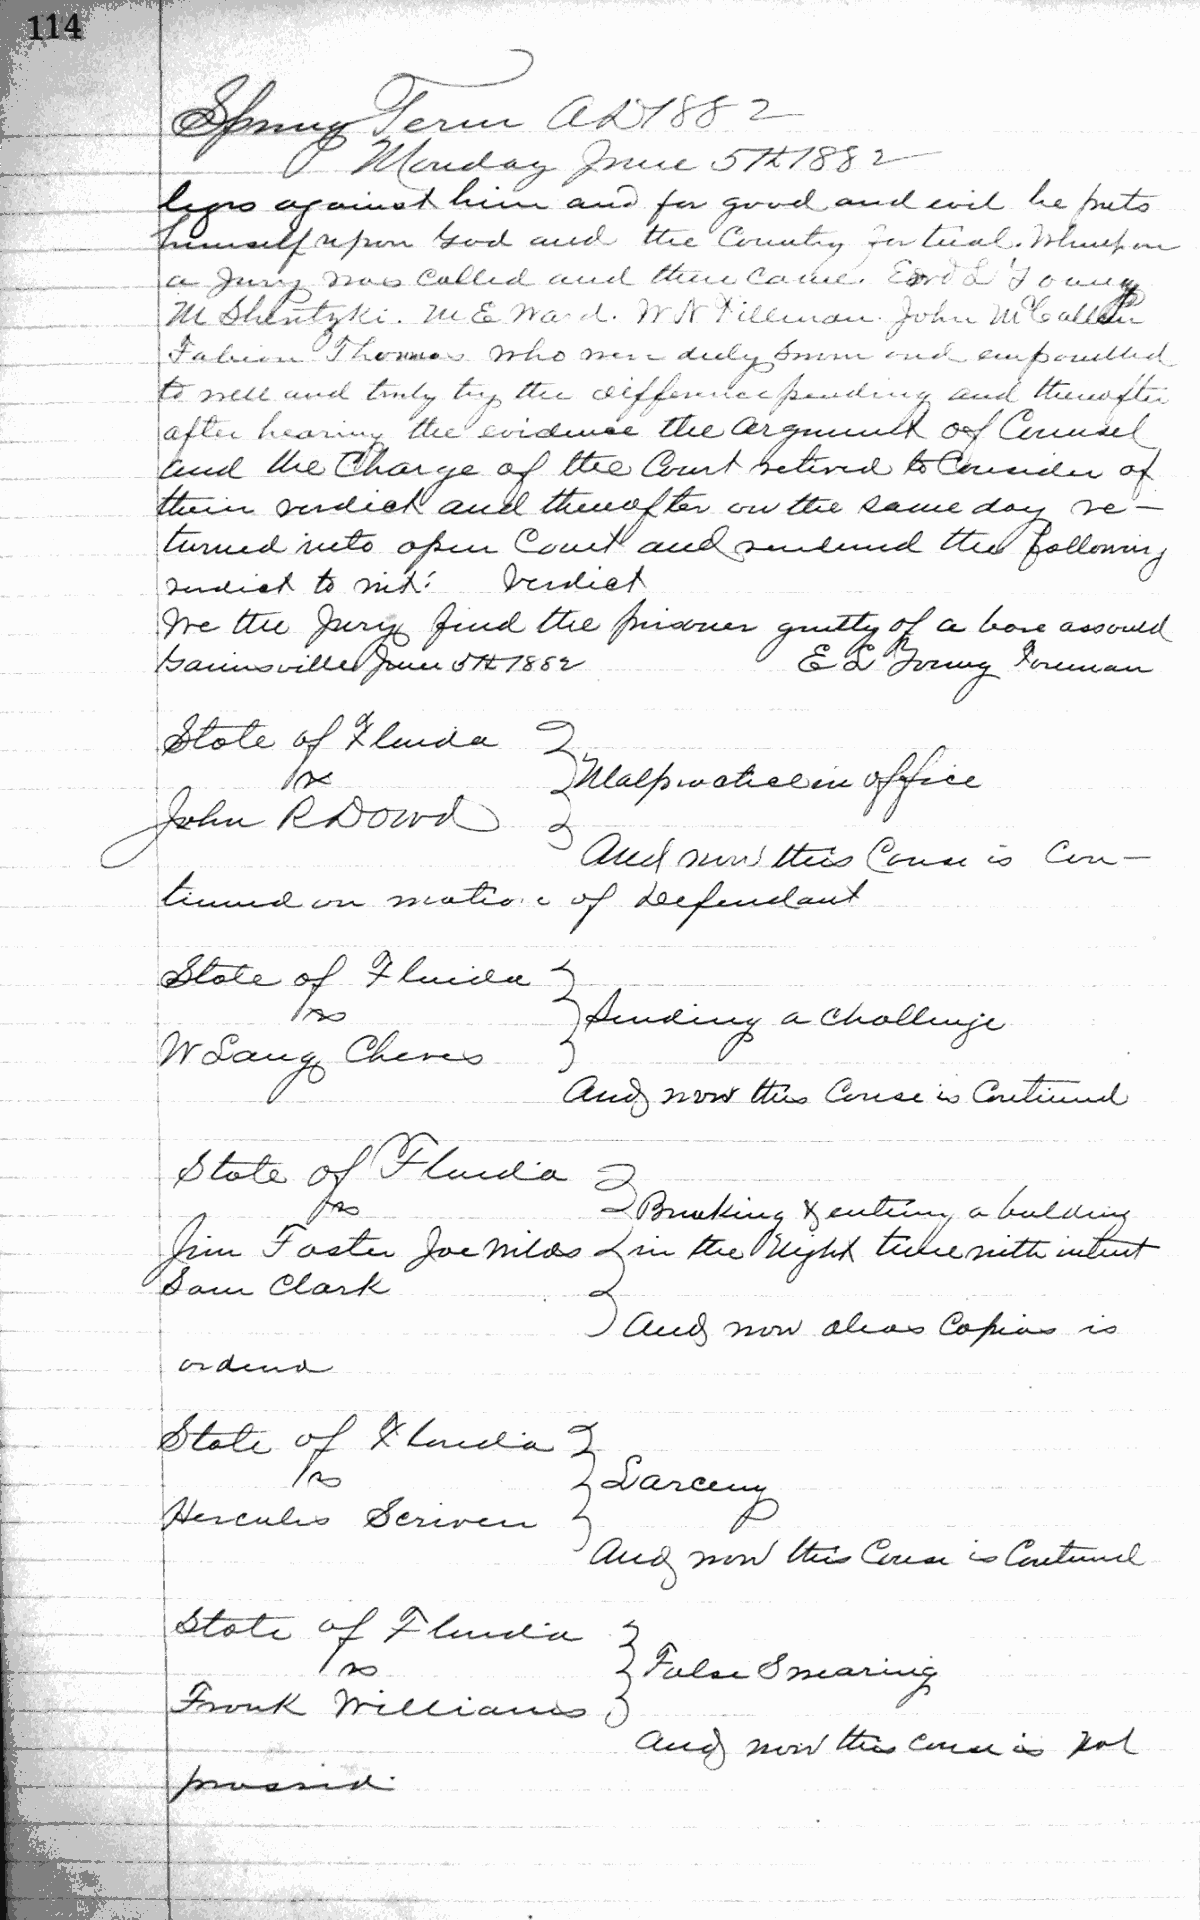 114
Spring Term AD 1882
Monday June 5th 1882
leges against him and for good and evil he puts
himself upon God and the Country for trial. Whereupon
a Jury was called and then came. Edwd L Young
M Shentzki. M E Ward. W N Tillman. John McCallen
Fabian Thomas who were duly sworn and empanelled
to well and truly try the difference pending and thereafter
after hearing the evidence the argument of Counsel
and the Charge of the Court retired to Consider of
their verdict and thereafter on the same day re-
turned into open Court and rendered the following
verdict to wit: Verdict
We the Jury find the prisoner guilty of a bare assault
Gainsville June 5th 1882 E L Young Foreman
State of Florida
vs
Malpractice in office
John R Dowd
And now this Cause is Con-
tinued on motion of Defendant
State of Florida
vs
Sending a challenge
W Lang Cheves
And now this Cause is Continued
State of Florida
vs
Breaking & entering a building
Jim Foster Joe Wilds in the Night time with intent
Sam Clark
And now alias Capias is
ordered
State of Florida
vs
Larceny
Hercules Scriven
And now this Cause is Continued
State of Florida
vs
False Swearing
Frank Williams
And now this cause is Nol
prossed.